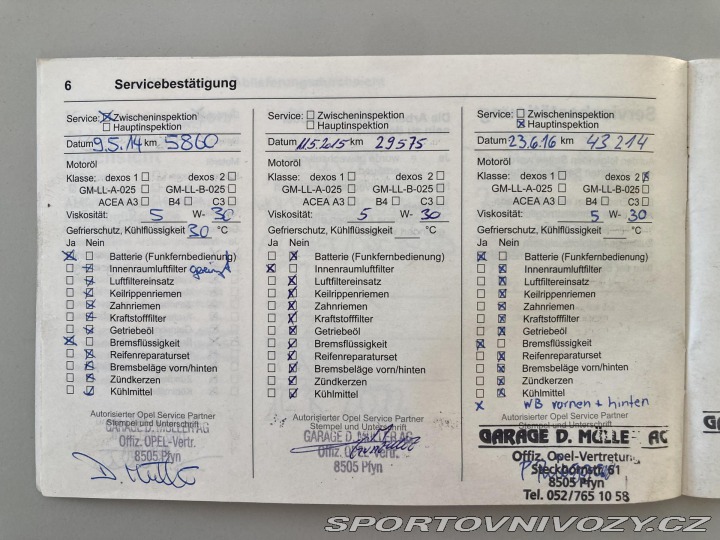 6 Servicebestätigung
Service: ☒ Zwischeninspektion
☐ Hauptinspektion
Datum 9.5.14 km 5860
Motoröl
Klasse: dexos 1 ☐ dexos 2 ☐
GM-LL-A-025 ☐ GM-LL-B-025 ☐
ACEA A3 ☐ B4 ☐ C3 ☐
Viskosität: 5 W- 30
Gefrierschutz, Kühlflüssigkeit 30 °C
Ja Nein
☒ ☐ Batterie (Funkfernbedienung)
☐ ☒ Innenraumluftfilter
☐ ☒ Luftfiltereinsatz
☐ ☒ Keilrippenriemen
☐ ☒ Zahnriemen
☐ ☒ Kraftstofffilter
☐ ☒ Getriebeöl
☒ ☐ Bremsflüssigkeit
☐ ☒ Reifenreparaturset
☐ ☒ Bremsbeläge vorn/hinten
☐ ☒ Zündkerzen
☐ ☒ Kühlmittel
Autorisierter Opel Service Partner
Stempel und Unterschrift
GARAGE D. MÜLLER AG
Offiz. OPEL-Vertr.
8505 Pfyn
D. Müller
Service: ☐ Zwischeninspektion
☐ Hauptinspektion
Datum 11.5.2015 km 29575
Motoröl
Klasse: dexos 1 ☐ dexos 2 ☐
GM-LL-A-025 ☐ GM-LL-B-025 ☐
ACEA A3 ☐ B4 ☐ C3 ☐
Viskosität: 5 W- 30
Gefrierschutz, Kühlflüssigkeit °C
Ja Nein
☐ ☒ Batterie (Funkfernbedienung)
☒ ☐ Innenraumluftfilter
☐ ☒ Luftfiltereinsatz
☐ ☒ Keilrippenriemen
☐ ☒ Zahnriemen
☐ ☒ Kraftstofffilter
☐ ☒ Getriebeöl
☐ ☒ Bremsflüssigkeit
☐ ☒ Reifenreparaturset
☐ ☒ Bremsbeläge vorn/hinten
☐ ☒ Zündkerzen
☐ ☒ Kühlmittel
Autorisierter Opel Service Partner
Stempel und Unterschrift
GARAGE D. MÜLLER AG
Offiz. OPEL-Vertr.
8505 Pfyn
Service: ☐ Zwischeninspektion
☒ Hauptinspektion
Datum 23.6.16 km 43214
Motoröl
Klasse: dexos 1 ☐ dexos 2 ☒
GM-LL-A-025 ☐ GM-LL-B-025 ☐
ACEA A3 ☐ B4 ☐ C3 ☐
Viskosität: 5 W- 30
Gefrierschutz, Kühlflüssigkeit °C
Ja Nein
☒ ☐ Batterie (Funkfernbedienung)
☐ ☒ Innenraumluftfilter
☐ ☒ Luftfiltereinsatz
☐ ☒ Keilrippenriemen
☐ ☒ Zahnriemen
☐ ☒ Kraftstofffilter
☐ ☒ Getriebeöl
☒ ☐ Bremsflüssigkeit
☐ ☒ Reifenreparaturset
☐ ☒ Bremsbeläge vorn/hinten
☐ ☒ Zündkerzen
☐ ☒ Kühlmittel
x WB vornen + hinten
Autorisierter Opel Service Partner
Stempel und Unterschrift
GARAGE D. MÜLLE AG
Offiz. Opel-Vertretung
Steckbornstr. 61
8505 Pfyn
Tel. 052/765 10 58
SPORTOVNIVOZY.CZ